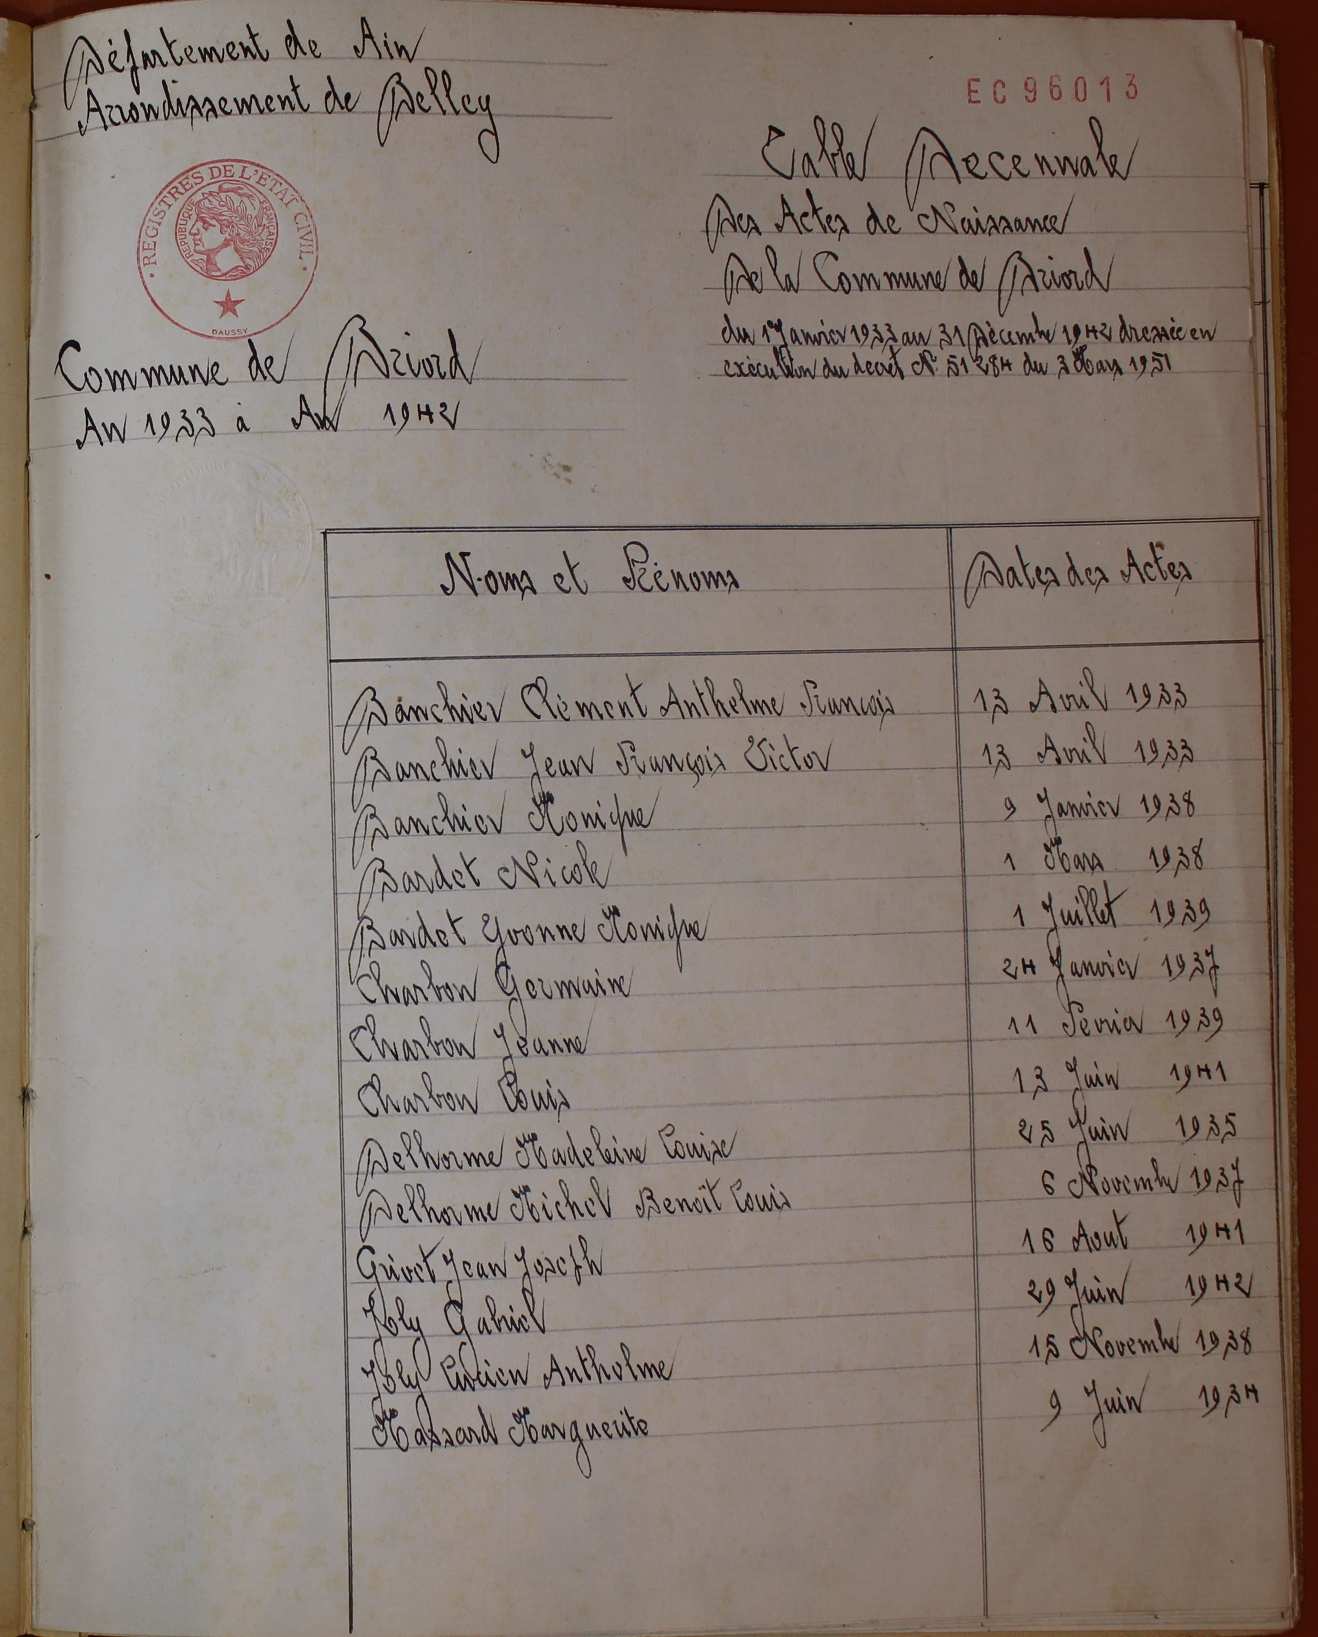 Département de Ain
Arrondissement de Belley
EC96013
Table Decennale
Des Actes de Naissance
De la Commune de Briord
du 1er Janvier 1933 au 31 Décembre 1942 dressée en
exécution du decret N° 51 284 du 3 Mars 1951
REGISTRES DE L'ÉTAT CIVIL
REPUBLIQUE FRANÇAISE
DAUSSY
Commune de Briord
An 1933 à An 1942
Noms et Prénoms
Dates des Actes
Banchier Clément Anthelme François 13 Avril 1933
Banchier Jean François Victor 13 Avril 1933
Banchier Monique 9 Janvier 1938
Bardet Nicole 1 Mars 1938
Bardet Yvonne Monique 1 Juillet 1939
Charbon Germaine 24 Janvier 1937
Charbon Jeanne 11 Fevrier 1939
Charbon Louis 13 Juin 1941
Delhorme Madeleine Louise 25 Juin 1935
Delhorme Michel Benoît Louis 6 Novembre 1937
Grivet Jean Joseph 16 Aout 1941
Joly Gabriel 29 Juin 1942
Joly Lucien Anthelme 15 Novembre 1938
Massard Marguerite 9 Juin 1934